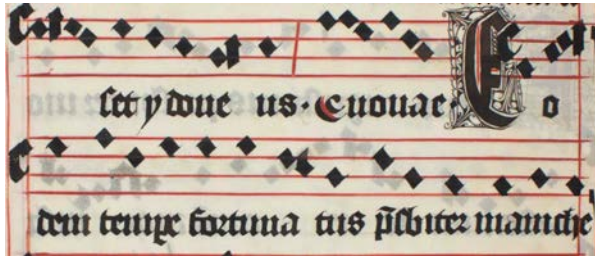 set ydone us. Euouae. Eo
dem tempe fortuna tus p̄sbiter maniche